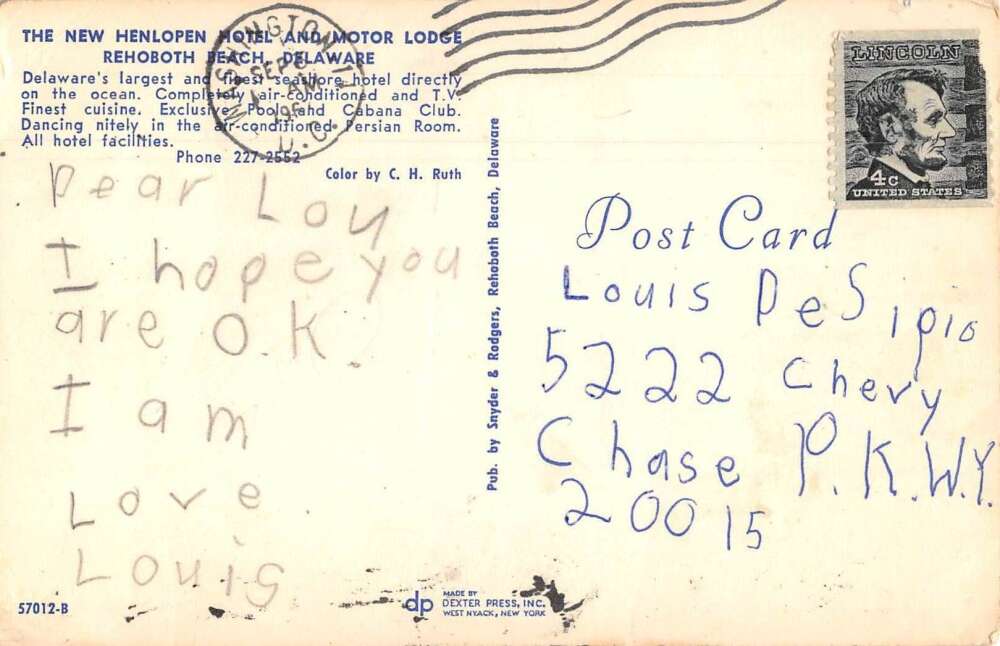 THE NEW HENLOPEN HOTEL AND MOTOR LODGE
REHOBOTH BEACH, DELAWARE
Delaware's largest and finest seashore hotel directly
on the ocean. Completely air-conditioned and T.V.
Finest cuisine. Exclusive Pool and Cabana Club.
Dancing nitely in the air-conditioned Persian Room.
All hotel facilities.
Phone 227-2552
Color by C. H. Ruth
WASHINGTON
SEP
AM
D.C.
LINCOLN
4c
UNITED STATES
Dear Lou
I hope you
are O.K.
I am
Love
Louis
Pub. by Snyder & Rodgers, Rehoboth Beach, Delaware
Post Card
Louis DeSipio
5222 Chevy
Chase P.K.W.Y.
20015
57012-B
dp
MADE BY
DEXTER PRESS, INC.
WEST NYACK, NEW YORK